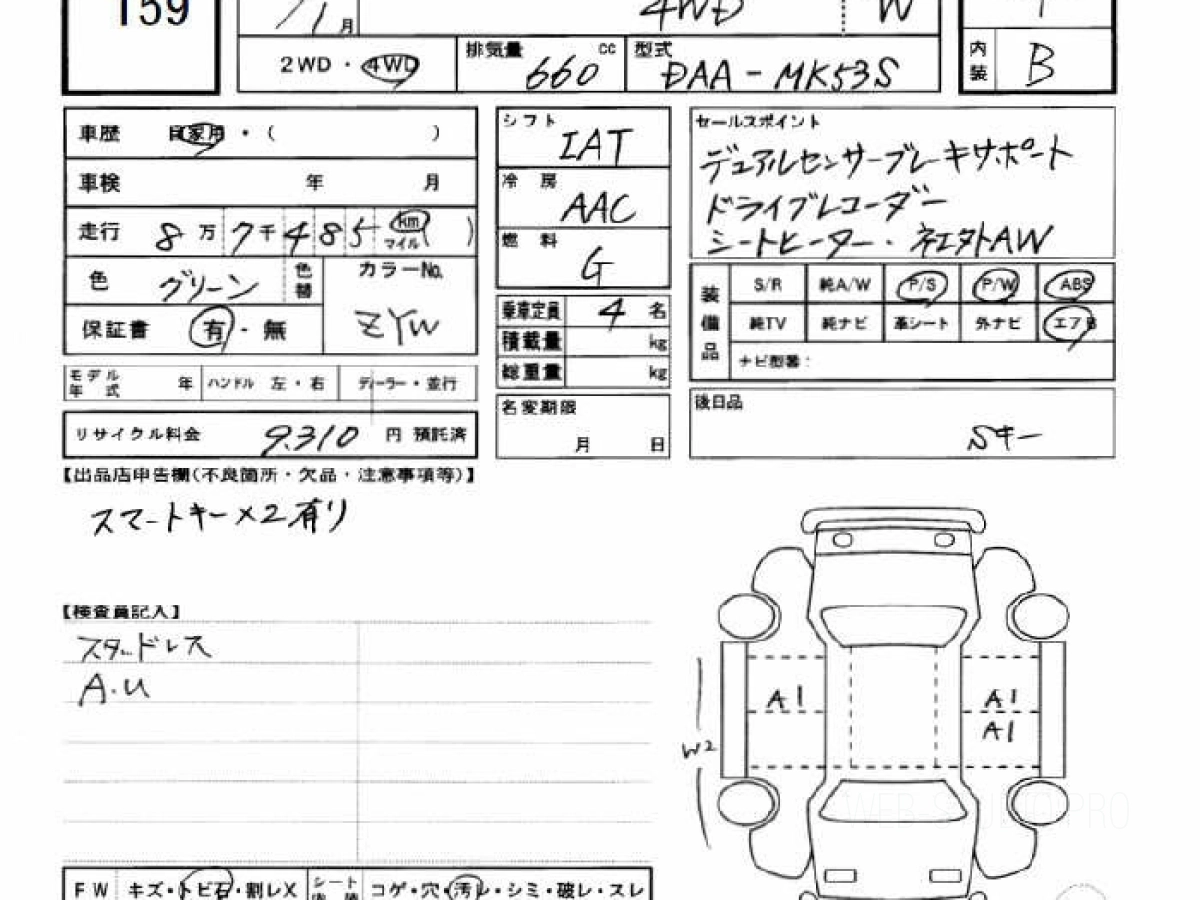 159
/1 月
4WD
W
2WD・4WD
排気量 660 cc
型式 DAA-MK53S
内装 B
車歴 自家用・( )
車検 年 月
走行 8万7千485 km マイル( )
色 グリーン 色替
カラーNo. ZYW
保証書 有・無
モデル年式 年 ハンドル 左・右 ディーラー・並行
リサイクル料金 9,310 円 預託済
シフト IAT
冷房 AAC
燃料 G
乗車定員 4 名
積載量 kg
総重量 kg
名変期限
月 日
セールスポイント
デュアルセンサーブレーキサポート
ドライブレコーダー
シートヒーター・社外AW
装備品
S/R 純A/W P/S P/W ABS
純TV 純ナビ 革シート 外ナビ エアB
ナビ型番:
後日品
Sキー
【出品店申告欄(不良箇所・欠品・注意事項等)】
スマートキー×2有り
【検査員記入】
スタッドレス
A・U
A1
A1
A1
W2
WEB STUDIO PRO
FW キズ・トビ石・割レX
シート コゲ・穴・汚レ・シミ・破レ・スレ